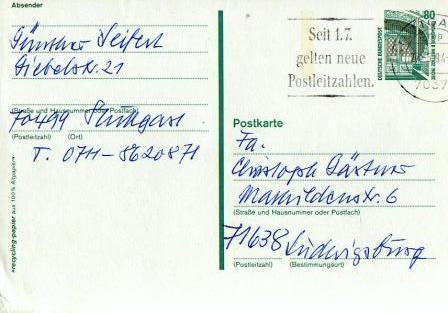 Absender
Günther Seifert
Giebelstr. 21
(Straße und Hausnummer oder Postfach)
70499 Stuttgart
(Postleitzahl) (Ort)
T. 0711-8620871
recycling-papier aus 100% Altpapier
Seit 1.7.
gelten neue
Postleitzahlen.
80
DEUTSCHE BUNDESPOST
Postkarte
Fa.
Christoph Gärtner
Mathildenstr. 6
(Straße und Hausnummer oder Postfach)
71638 Ludwigsburg
(Postleitzahl) (Bestimmungsort)